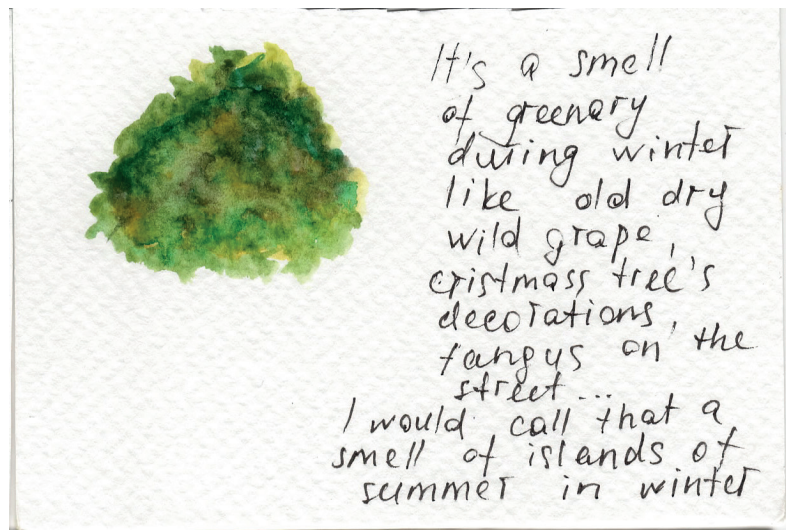 It's a smell
of greenary
during winter
like old dry
wild grape,
cristmass tree's
decorations,
fangus on the
street...
I would call that a
smell of islands of
summer in winter